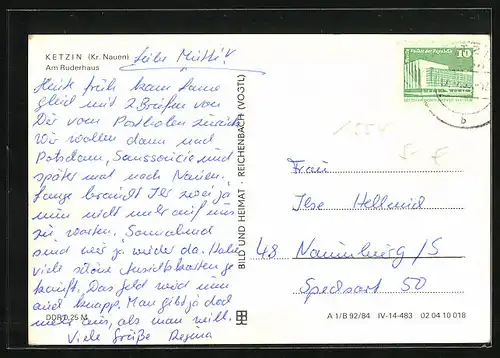 KETZIN (Kr. Nauen)
Am Ruderhaus
Liebe Mutti!
Heute früh kam
gleich mit 2 Briefen von
Dir vom Postholen zurück.
Wir wollen dann nach
Potsdam, Sanssoucie und
später mal nach Nauen.
Lange braucht Ihr zwei ja
nun nicht mehr auf uns
zu warten. Sonnabend
sind wir ja wieder da. Habe
viele schöne Ansichtskarten ge-
kauft. Das Geld wird nun
auch knapp. Man gibt ja doch
mehr aus, als man will.
Viele Grüße Regina
DDR 0,25 M
BILD UND HEIMAT · REICHENBACH (VOGTL)
Palast der Republik 10
Frau
Ilse
48 Naumburg/S
Spechsart 50
A 1/B 92/84 IV-14-483 02 04 10 018